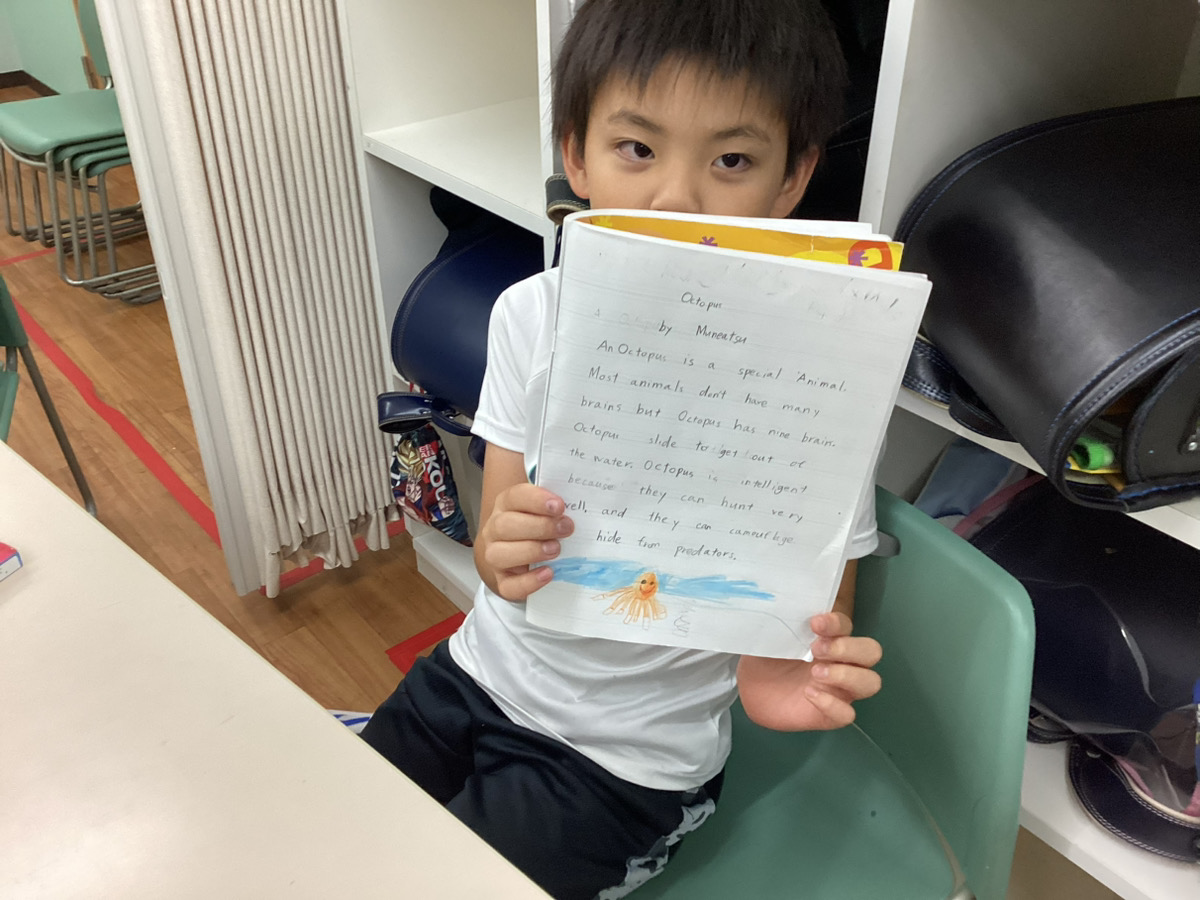 Octopus
by Muneatsu
An Octopus is a special Animal.
Most animals don't have many
brains but Octopus has nine brain.
Octopus slide to get out of
the water. Octopus is intelligent
because they can hunt very
well. and they can camouflage
hide from predators.
KOU